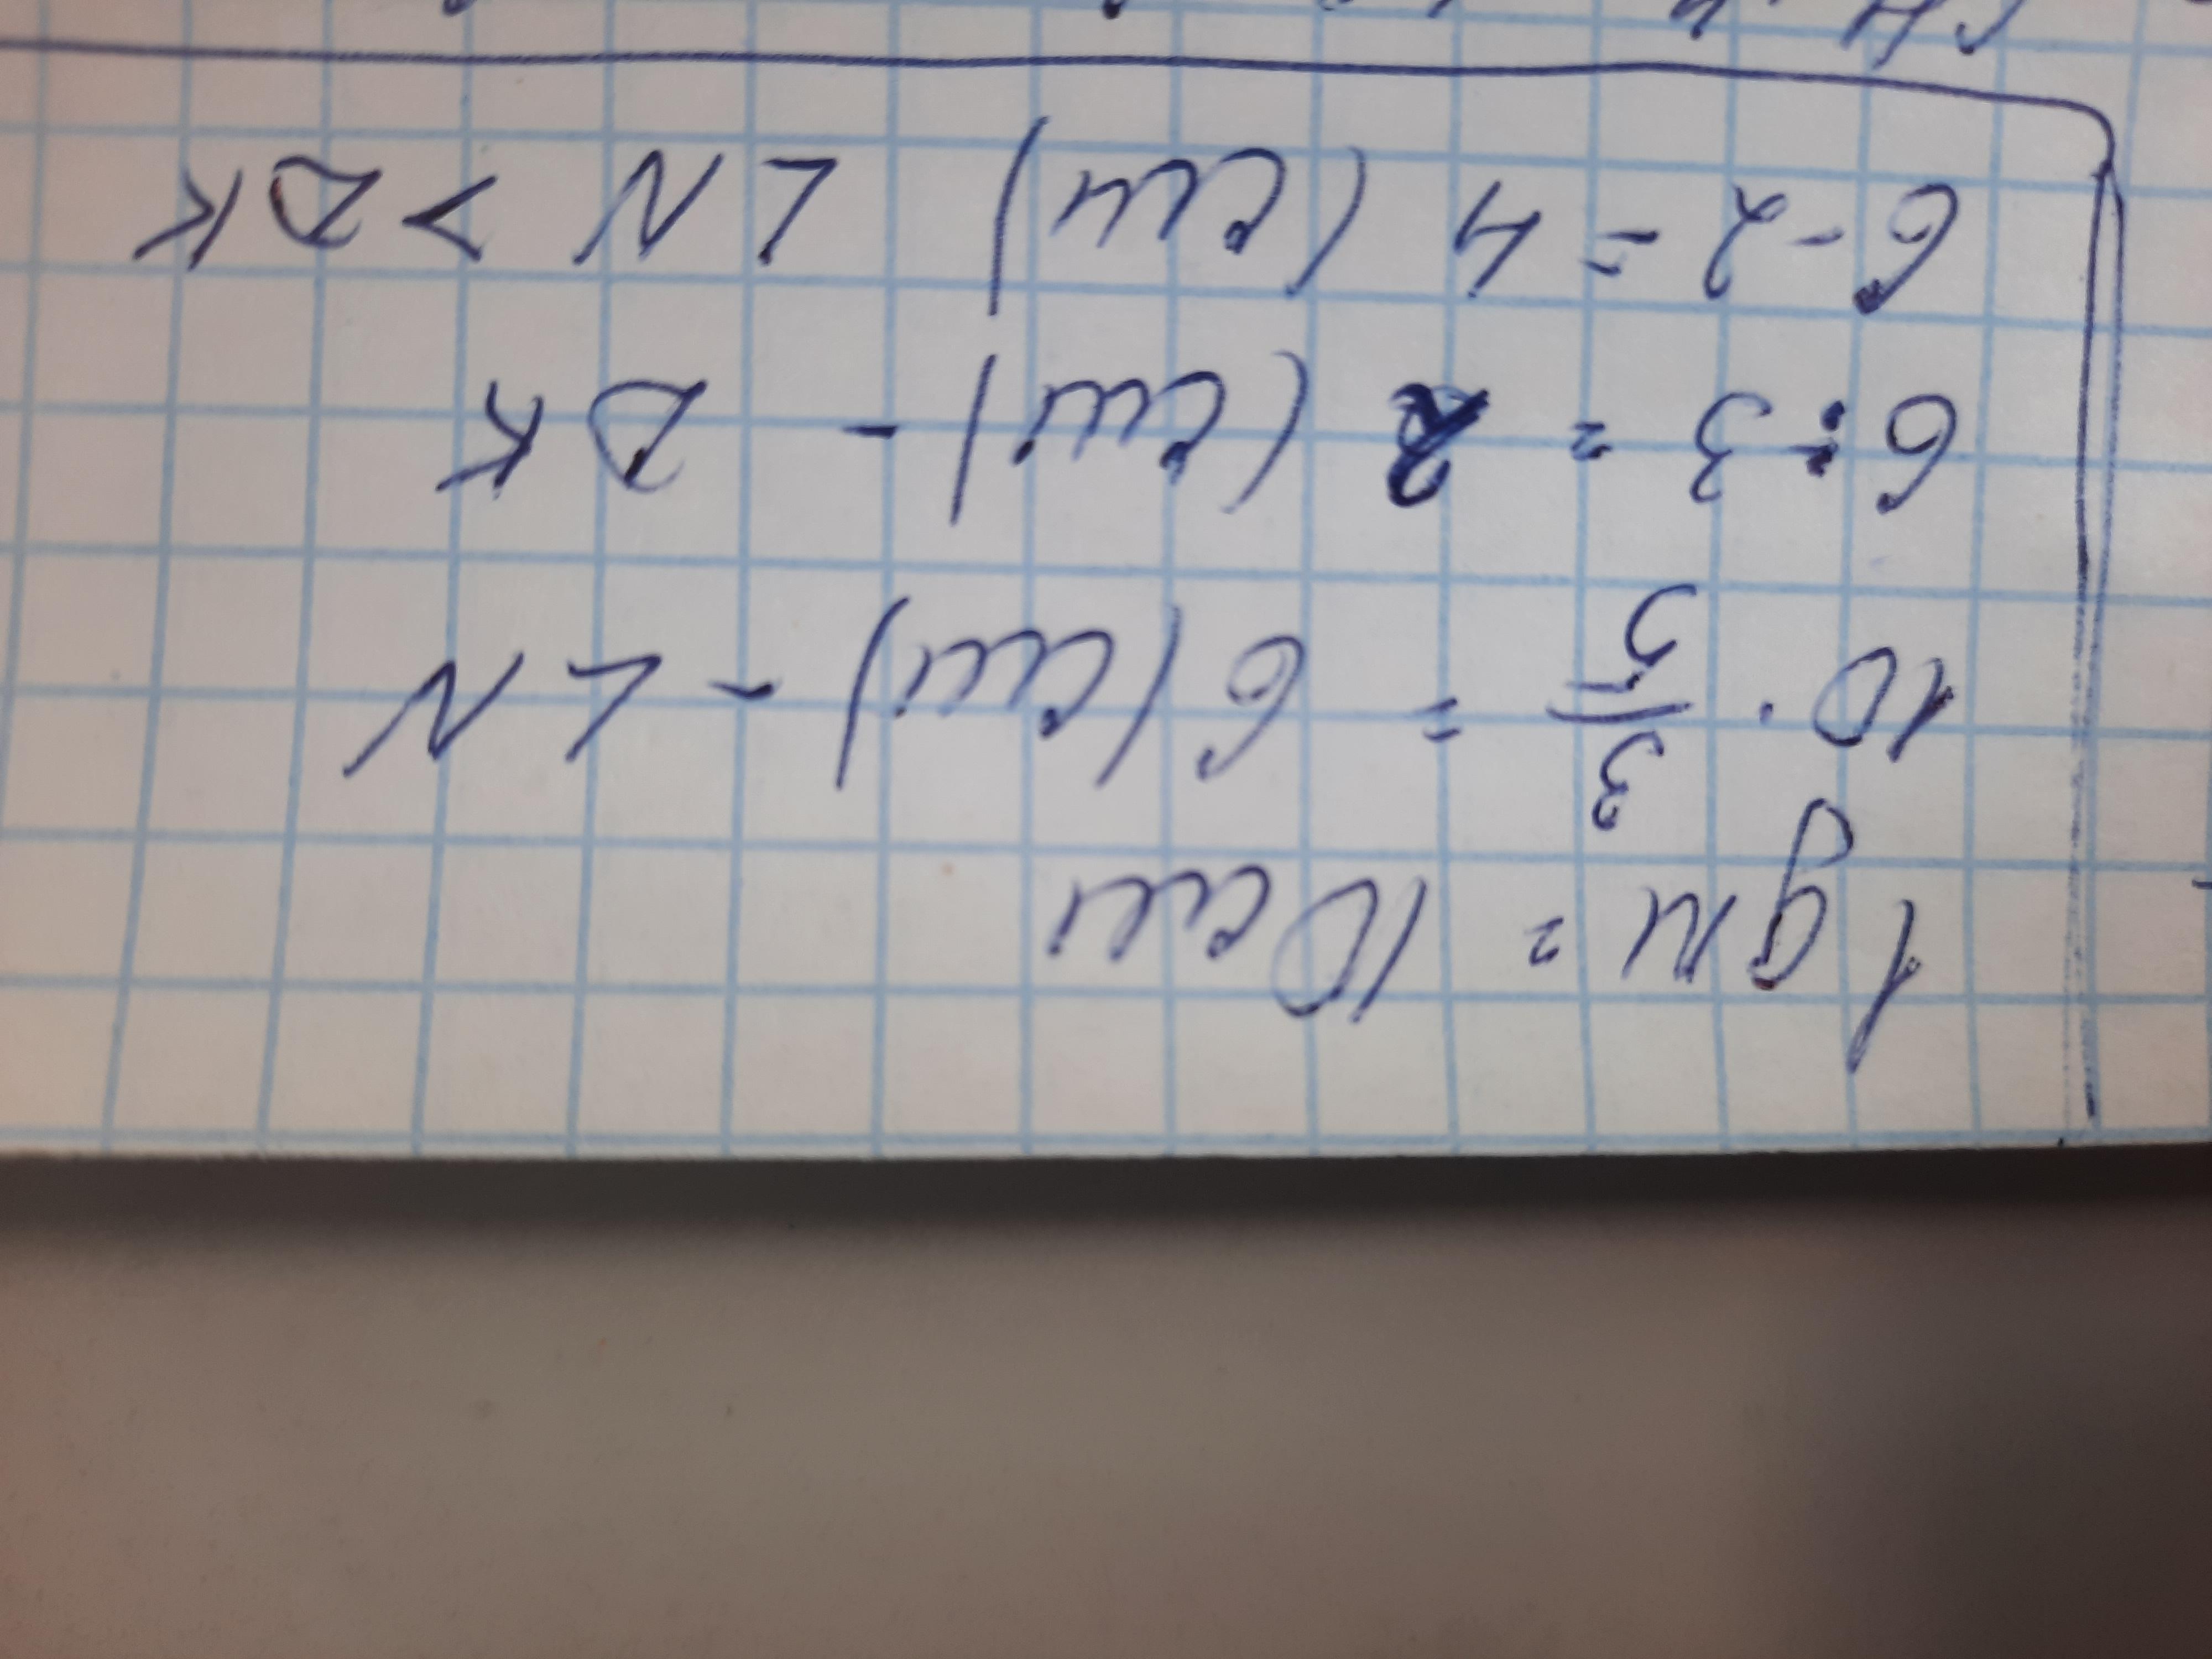 1дм = 10см
10 · 3/5 = 6(см) - LN
6 : 3 = 2 (см) - DK
6 - 2 = 4 (см) LN > DK